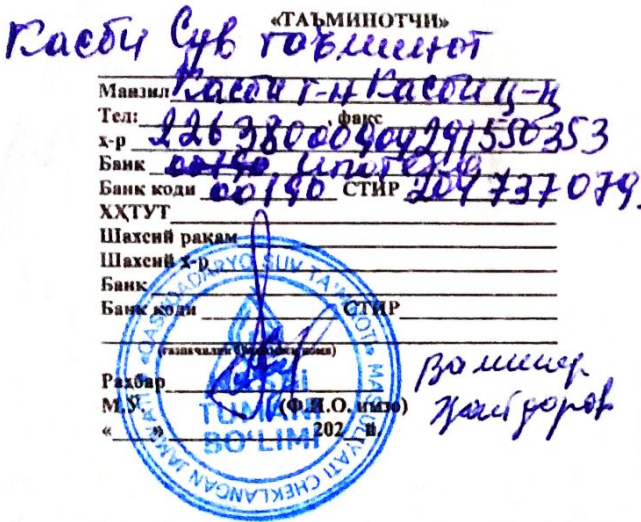 «ТАЪМИНОТЧИ»
Касби Сув таъминот
Манзил Касби т-н Касби ц-н
Тел: , факс
х-р 22638000904291550353
Банк 00190, Ипотека
Банк коди 00190 СТИР
ХҲТУТ
Шахсий рақам
Шахсий х-р
Банк
Банк коди СТИР
Раҳбар
М.Ў. (Ф.И.О. имзо)
« » 202 й.
«QASHQADARYO SUV TA'MINOTI» MAS'ULIYATI CHEKLANGAN JAMIYATI
KASBI
TUMANI
BO'LIMI